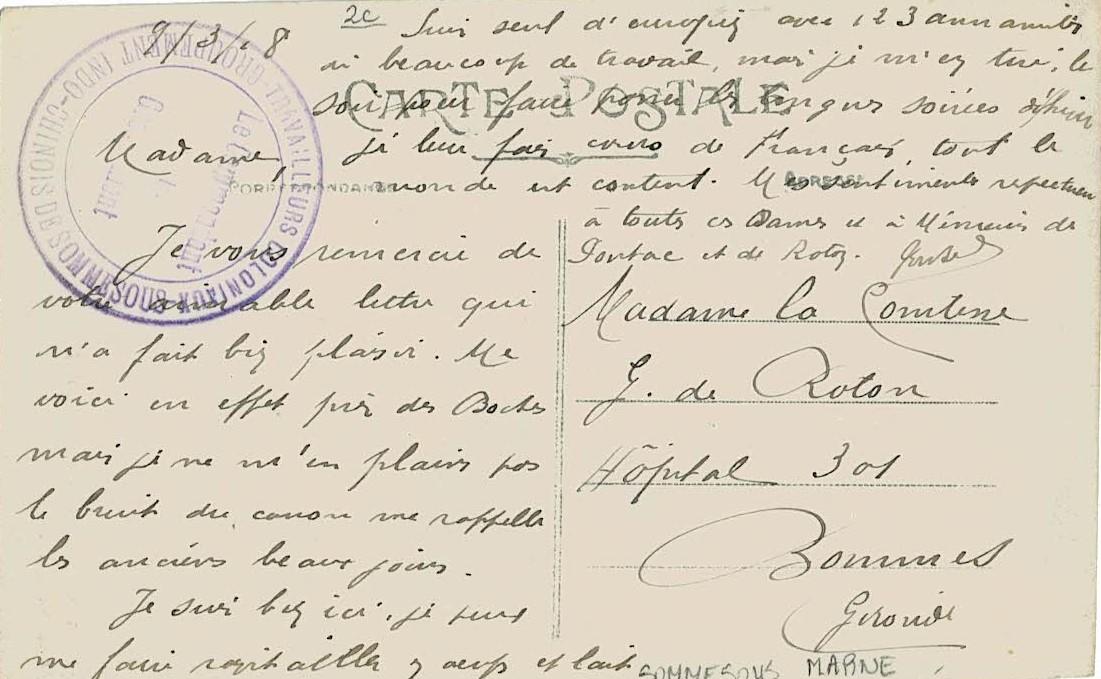 2c
9/3/18
TRAVAILLEURS COLONIAUX
GROUPEMENT INDO-CHINOIS DE SOMMESOUS
Le Commandant
CARTE POSTALE
CORRESPONDANCE
ADRESSE
Madame,
Je vous remercie de
votre aimable lettre qui
m'a fait bien plaisir. Me
voici en effet près des Boches
mais je ne m'en plains pas
le bruit du canon me rappelle
les anciens beaux jours.
Je suis bien ici, je peux
me faire ravitailler oeufs et lait
Suis seul d'européen avec 123 annamites
ai beaucoup de travail, mais je m'en tire, le
soir pour faire les longues soirées d'hiver
je leur fais cours de Français, tout le
monde est content. Mes sentiments respectueux
à toutes ces Dames et à Messieurs de
Pontac et de Roton.
Madame la Comtesse
G. de Roton
Hôpital 301
Bommes
Gironde
SOMMESOUS MARNE